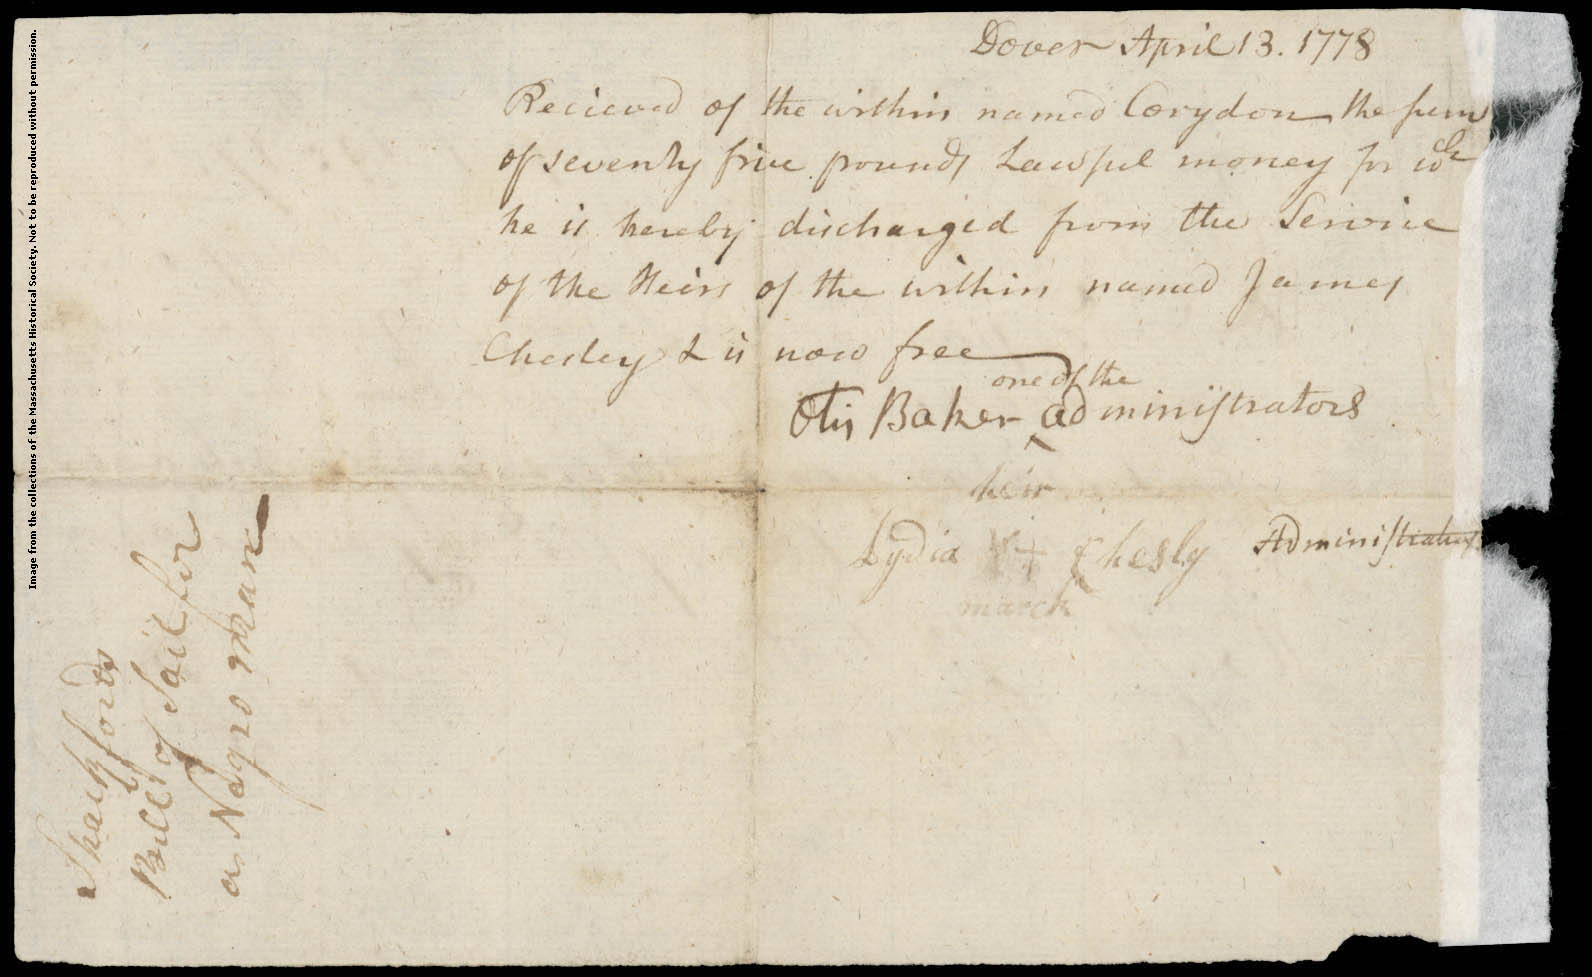 Dover April 13. 1778
Recieved of the within named Corydon the sum
of seventy five pounds Lawful money for wch
he is hereby discharged from the Service
of the Heirs of the within named James
Chesley & is now free
one of the
Otis Baker ^ administrators
heir
Lydia + Chesly Administratrx
marck
Shackfords
Bill of Sail for
a Negro Man
Image from the collections of the Massachusetts Historical Society. Not to be reproduced without permission.